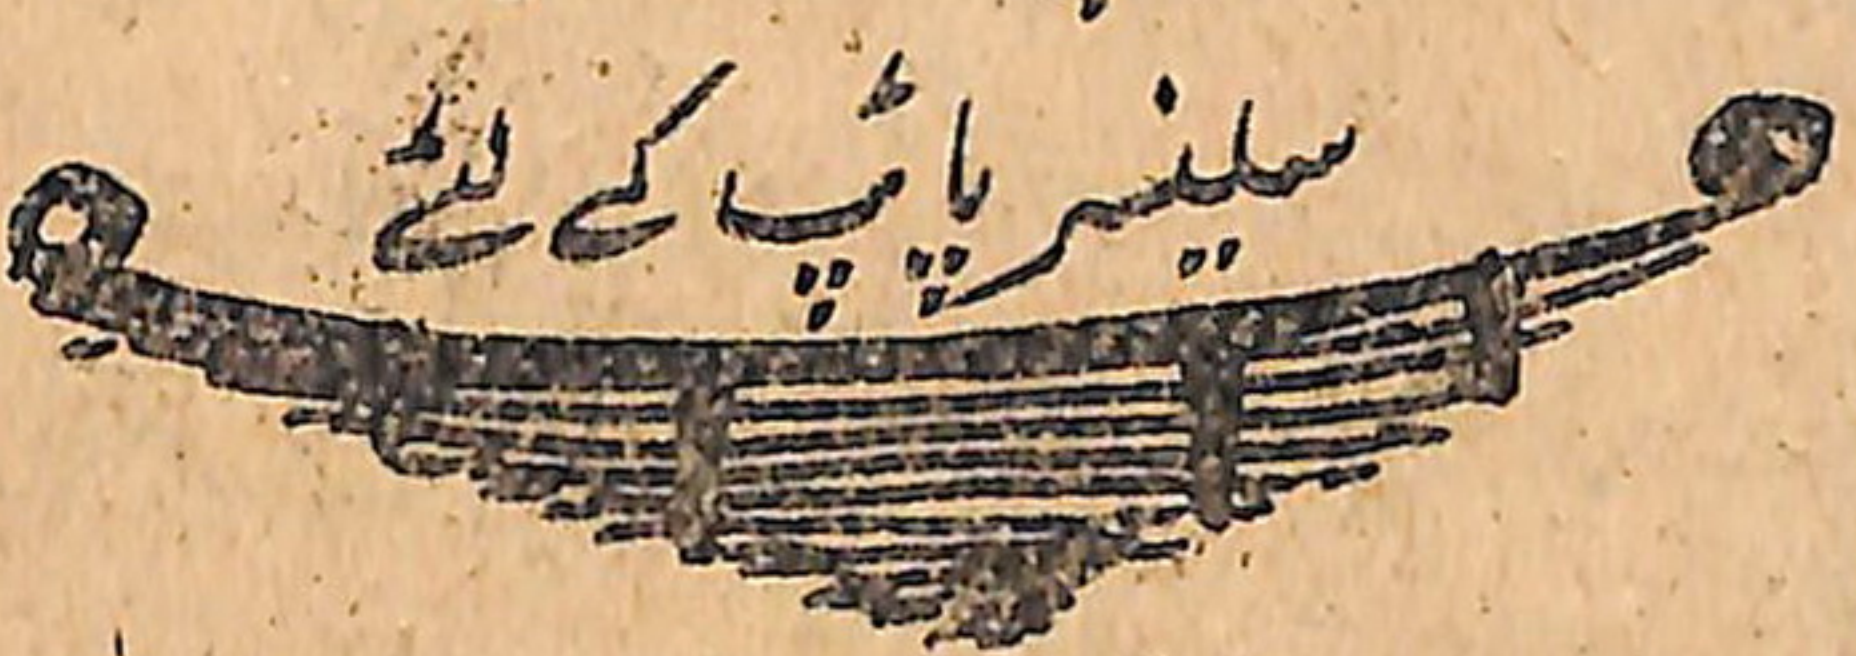 سلینسر پائپ کے لئے